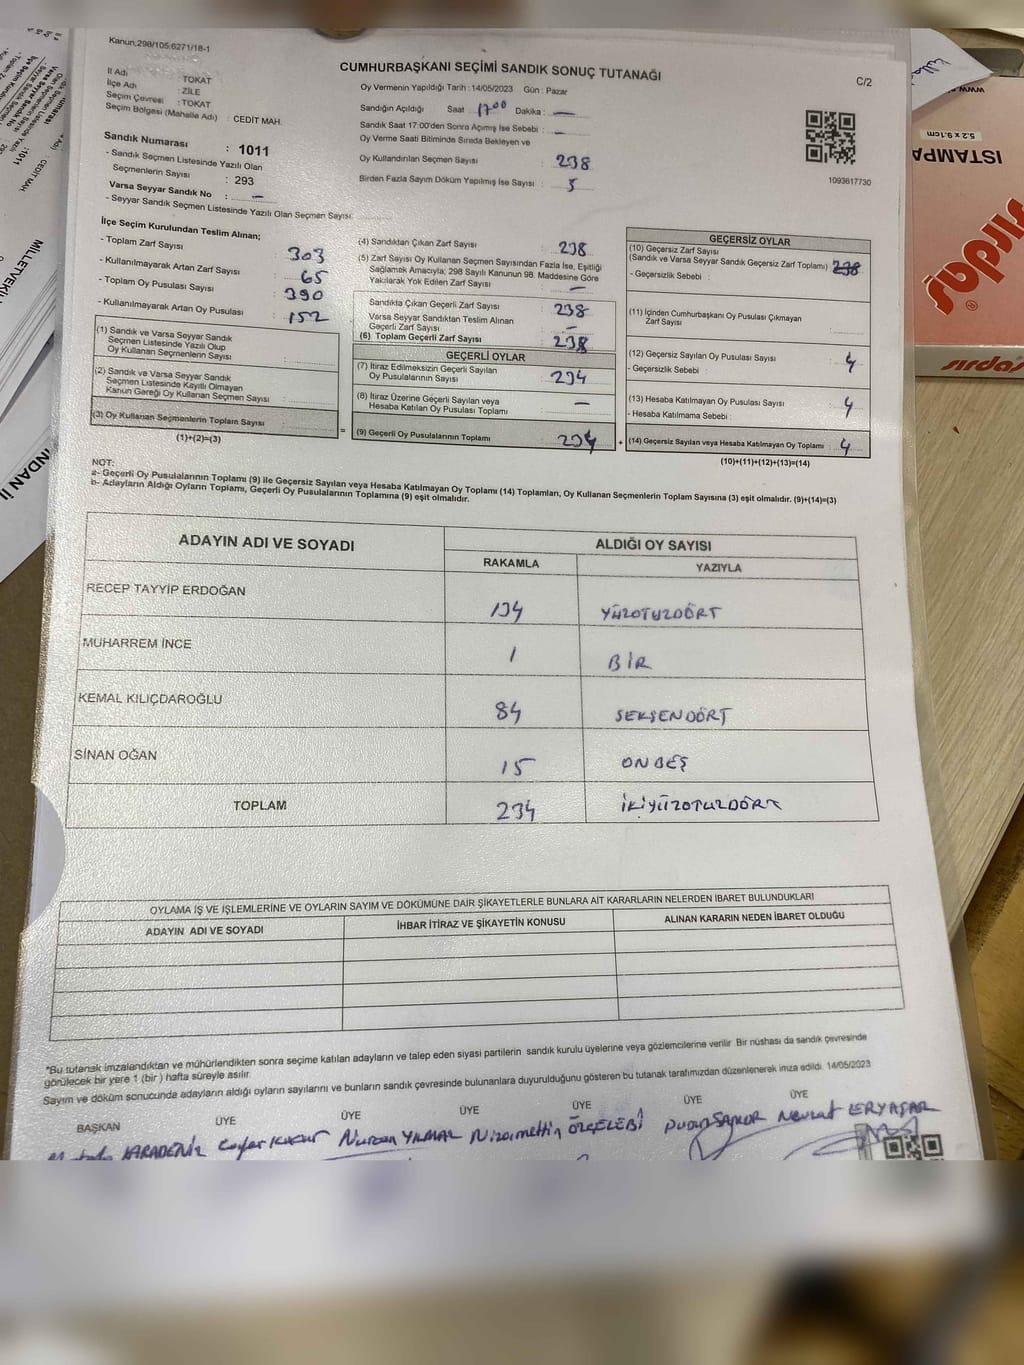 Kanun;298/105;6271/18-1
CUMHURBAŞKANI SEÇİMİ SANDIK SONUÇ TUTANAĞI
C/2
İl Adı : TOKAT
İlçe Adı : ZİLE
Seçim Çevresi : TOKAT
Seçim Bölgesi (Mahalle Adı) : CEDİT MAH.
Sandık Numarası : 1011
- Sandık Seçmen Listesinde Yazılı Olan
Seçmenlerin Sayısı : 293
Varsa Seyyar Sandık No : -
- Seyyar Sandık Seçmen Listesinde Yazılı Olan Seçmen Sayısı
Oy Vermenin Yapıldığı Tarih : 14/05/2023 Gün : Pazar
Sandığın Açıldığı Saat 17.00 Dakika : —
Sandık Saat 17:00'den Sonra Açımış İse Sebebi : —
Oy Verme Saati Bitiminde Sırada Bekleyen ve
Oy Kullandırılan Seçmen Sayısı : 238
Birden Fazla Sayım Döküm Yapılmış İse Sayısı : 5
1093617730
İlçe Seçim Kurulundan Teslim Alınan;
- Toplam Zarf Sayısı : 303
- Kullanılmayarak Artan Zarf Sayısı : 65
- Toplam Oy Pusulası Sayısı : 390
- Kullanılmayarak Artan Oy Pusulası : 152
(1) Sandık ve Varsa Seyyar Sandık
Seçmen Listesinde Yazılı Olup
Oy Kullanan Seçmenlerin Sayısı :
(2) Sandık ve Varsa Seyyar Sandık
Seçmen Listesinde Kayıtlı Olmayan
Kanun Gereği Oy Kullanan Seçmen Sayısı :
(3) Oy Kullanan Seçmenlerin Toplam Sayısı :
(1)+(2)=(3)
(4) Sandıktan Çıkan Zarf Sayısı : 238
(5) Zarf Sayısı Oy Kullanan Seçmen Sayısından Fazla İse, Eşitliği
Sağlamak Amacıyla; 298 Sayılı Kanunun 98. Maddesine Göre
Yakılarak Yok Edilen Zarf Sayısı : —
Sandıkta Çıkan Geçerli Zarf Sayısı : 238
Varsa Seyyar Sandıktan Teslim Alınan
Geçerli Zarf Sayısı : —
(6) Toplam Geçerli Zarf Sayısı : 238
GEÇERLİ OYLAR
(7) İtiraz Edilmeksizin Geçerli Sayılan
Oy Pusulalarının Sayısı : 234
(8) İtiraz Üzerine Geçerli Sayılan veya
Hesaba Katılan Oy Pusulası Toplamı : —
= (9) Geçerli Oy Pusulalarının Toplamı : 234 +
GEÇERSİZ OYLAR
(10) Geçersiz Zarf Sayısı
(Sandık ve Varsa Seyyar Sandık Geçersiz Zarf Toplamı) : 238
- Geçersizlik Sebebi :
(11) İçinden Cumhurbaşkanı Oy Pusulası Çıkmayan
Zarf Sayısı :
(12) Geçersiz Sayılan Oy Pusulası Sayısı : 4
- Geçersizlik Sebebi :
(13) Hesaba Katılmayan Oy Pusulası Sayısı : 4
- Hesaba Katılmama Sebebi :
(14) Geçersiz Sayılan veya Hesaba Katılmayan Oy Toplamı : 4
(10)+(11)+(12)+(13)=(14)
NOT:
a- Geçerli Oy Pusulalarının Toplamı (9) ile Geçersiz Sayılan veya Hesaba Katılmayan Oy Toplamı (14) Toplamları, Oy Kullanan Seçmenlerin Toplam Sayısına (3) eşit olmalıdır. (9)+(14)=(3)
b- Adayların Aldığı Oyların Toplamı, Geçerli Oy Pusulalarının Toplamına (9) eşit olmalıdır.
ADAYIN ADI VE SOYADI
ALDIĞI OY SAYISI
RAKAMLA YAZIYLA
RECEP TAYYİP ERDOĞAN 134 YÜZOTUZDÖRT
MUHARREM İNCE 1 BİR
KEMAL KILIÇDAROĞLU 84 SEKSENDÖRT
SİNAN OĞAN 15 ONBEŞ
TOPLAM 234 İKİYÜZOTUZDÖRT
OYLAMA İŞ VE İŞLEMLERİNE VE OYLARIN SAYIM VE DÖKÜMÜNE DAİR ŞİKAYETLERLE BUNLARA AİT KARARLARIN NELERDEN İBARET BULUNDUKLARI
ADAYIN ADI VE SOYADI
İHBAR İTİRAZ VE ŞİKAYETİN KONUSU
ALINAN KARARIN NEDEN İBARET OLDUĞU
"Bu tutanak imzalandıktan ve mühürlendikten sonra seçime katılan adayların ve talep eden siyasi partilerin sandık kurulu üyelerine veya gözlemcilerine verilir. Bir nüshası da sandık çevresinde
görülecek bir yere 1 (bir) hafta süreyle asılır.
Sayım ve döküm sonucunda adayların aldığı oyların sayılarını ve bunların sandık çevresinde bulunanlara duyurulduğunu gösteren bu tutanak tarafımızdan düzenlenerek imza edildi. 14/05/2023
BAŞKAN ÜYE ÜYE ÜYE ÜYE ÜYE ÜYE
KARADENİZ
Nurcan YILMAZ
Nizamettin ÖZÇELEBİ
Nevzat ERYAŞAR
İSTAMPA
5.2 x 9.1cm
www
sırdaş
sırdaş
CEDİT MAH
: 1011